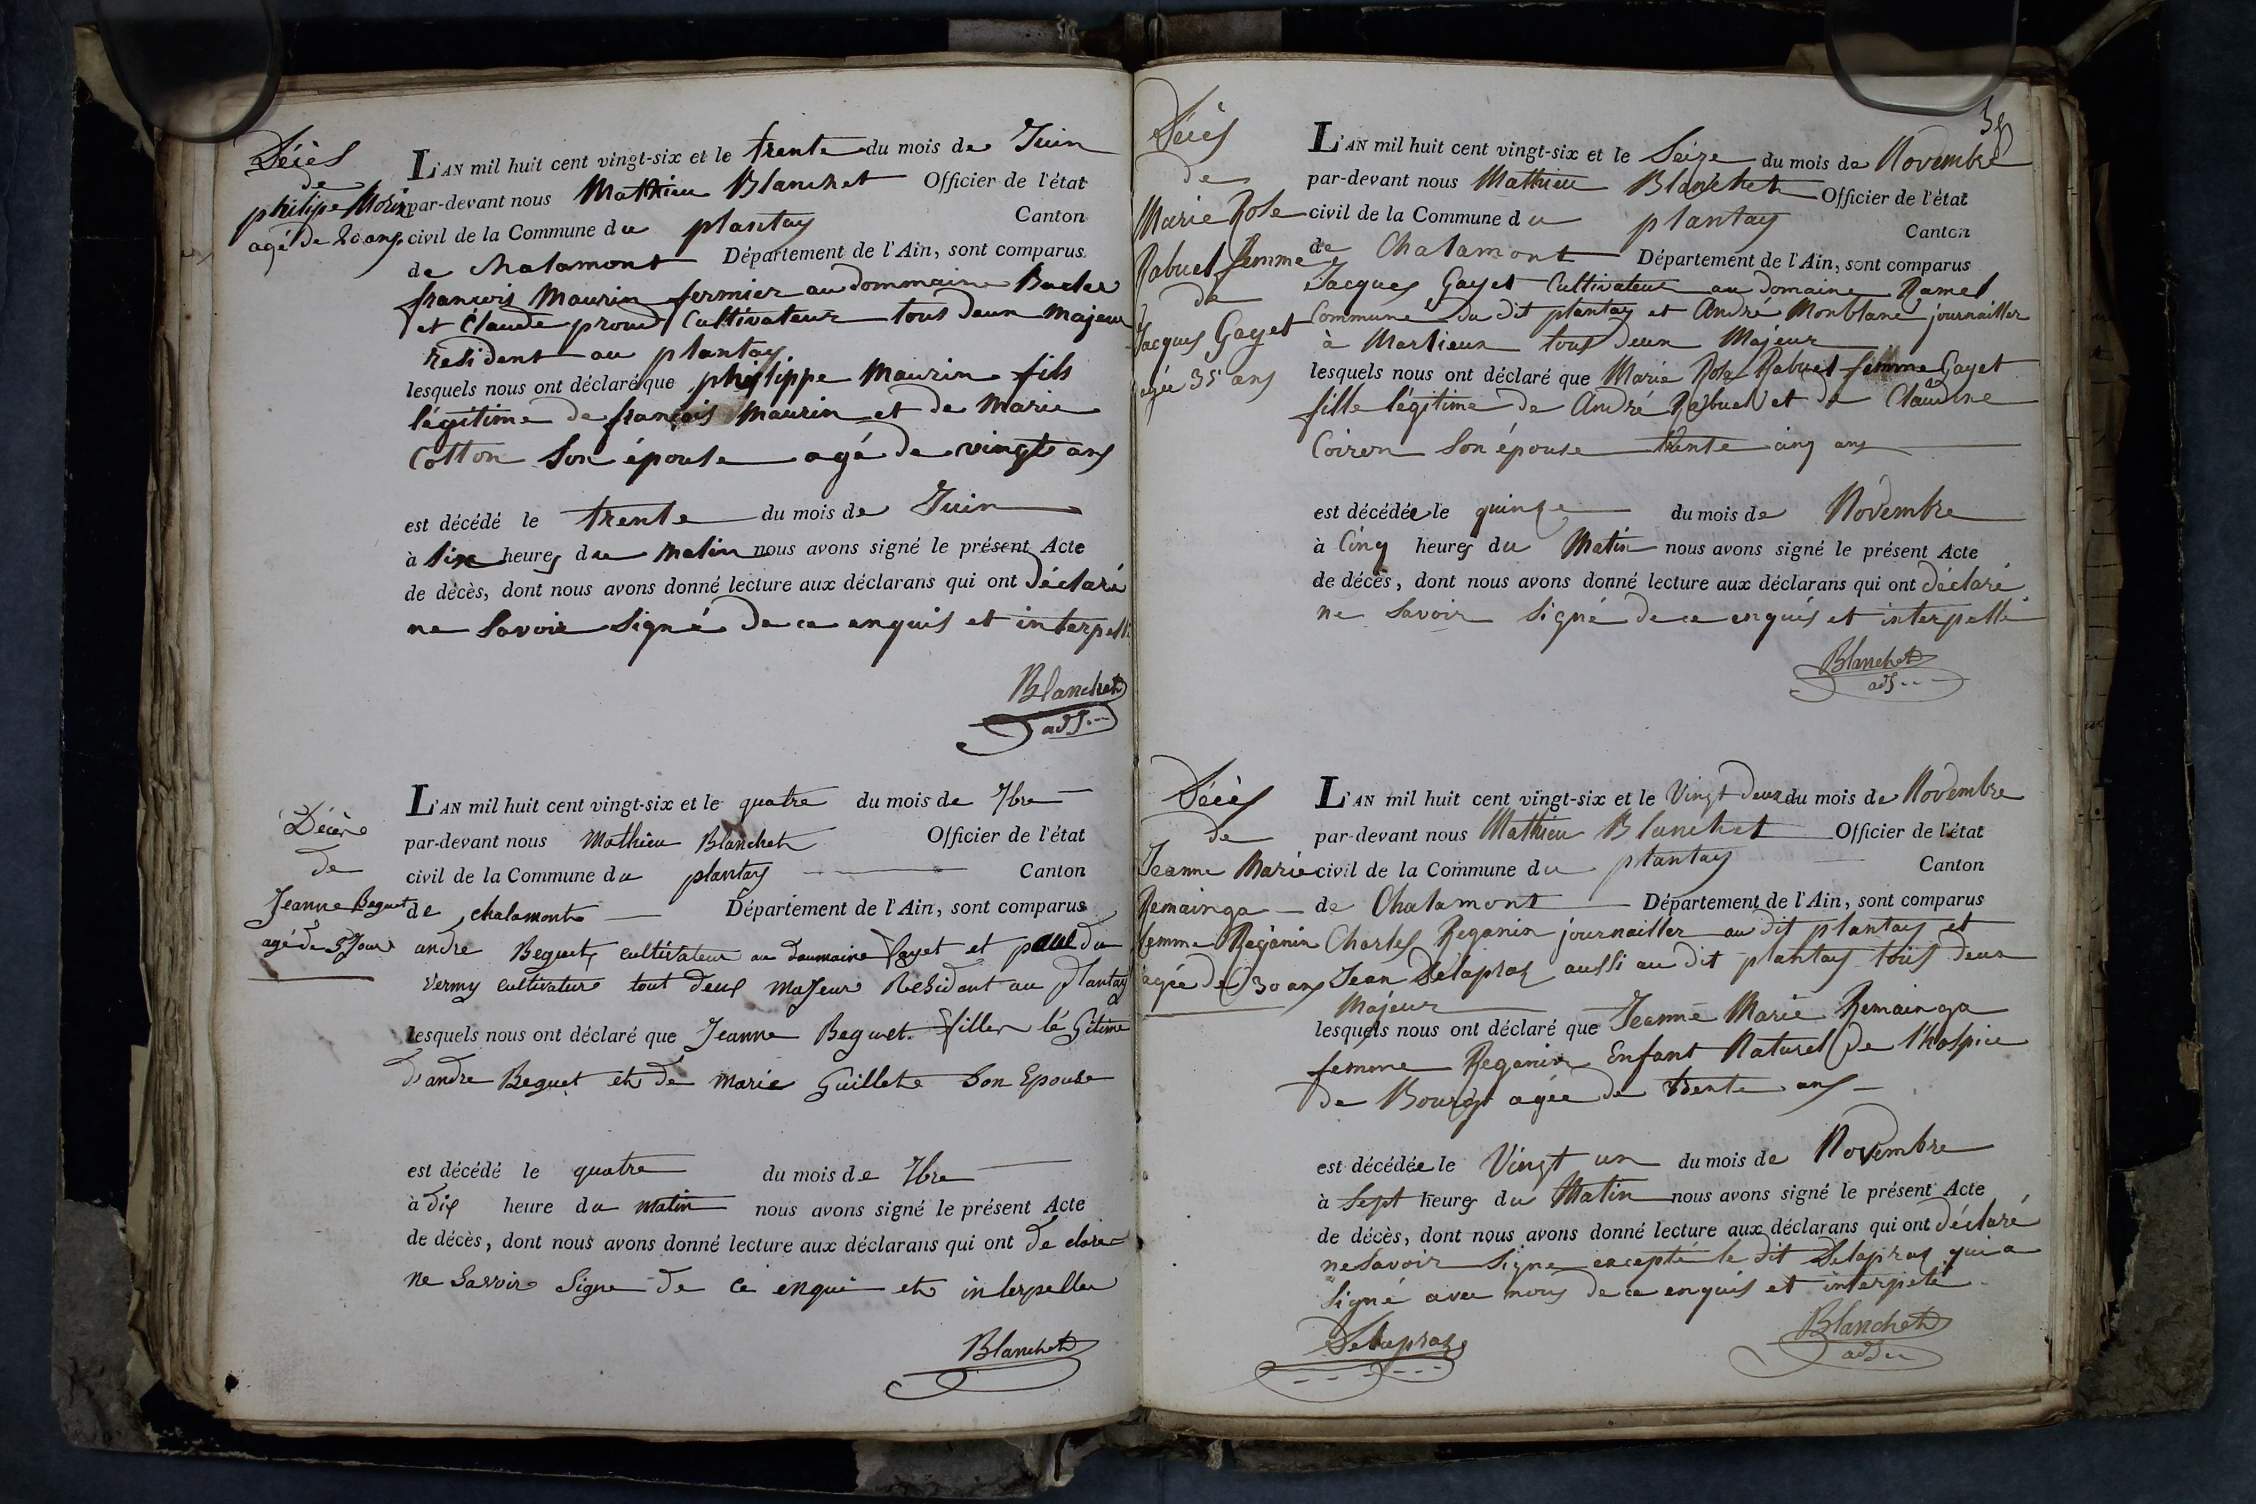 Décès
de
philipe Morin
agé de 20 ans
L'AN mil huit cent vingt-six et le trente du mois de Juin
par-devant nous Mathieu Blanchet Officier de l'état
civil de la Commune du plantay Canton
de chalamont Département de l'Ain, sont comparus
francois Maurin fermier au dommaine
et Claude proud Cultivateur tous deux Majeur
resident au plantay
lesquels nous ont déclaré que philippe Maurin fils
légitime de françois Maurin et de Marie
Cotton Son épouse agé de vingt ans
est décédé le trente du mois de Juin
à Six heures du Matin nous avons signé le présent Acte
de décès, dont nous avons donné lecture aux déclarans qui ont déclaré
ne Savoir Signé de ce enquis et interpellé
Blanchet
adj
Décès
de
Jeanne Beguet
agé de 5 Jour
L'AN mil huit cent vingt-six et le quatre du mois de 7bre
par-devant nous Mathieu Blanchet Officier de l'état
civil de la Commune du plantay Canton
de chalamont Département de l'Ain, sont comparus
andre Beguet, cultivateur au doumaine Gayet et paul du
vermy cultivature tout deux majeur Residant au plantay
lesquels nous ont déclaré que Jeanne Beguet filler lé Gitime
d'andre Beguet et de marie Guillete Son Epouse
est décédé le quatre du mois de 7bre
à dix heure du matin nous avons signé le présent Acte
de décès, dont nous avons donné lecture aux déclarans qui ont de clare
ne Savoir Signe de ce enqui et interpeller
Blanchet
Décès
de
Marie Rose
Rabuel femme
de
Jacques Gayet
agée 35 ans
L'AN mil huit cent vingt-six et le Seize du mois de Novembre
par-devant nous Mathieu Blanchet Officier de l'état
civil de la Commune du plantay Canton
de Chalamont Département de l'Ain, sont comparus
Jacques Gayet Cultivateur au domaine Ramel
Commune du dit plantay et André Monblanc journailler
à Marlieux tous deux Majeur
lesquels nous ont déclaré que Marie Rose Rabuel femme Gayet
fille légitime de André Rabuel et de Claudine
Coiron Son épouse trente cinq ans
est décédée le quinze du mois de Novembre
à Cinq heures du Matin nous avons signé le présent Acte
de décès, dont nous avons donné lecture aux déclarans qui ont déclaré
ne Savoir Signé de ce enquis et interpellé
Blanchet
adj
Décès
de
Jeanne Marie
Remainga
femme Reganin
agée de 30 ans
L'AN mil huit cent vingt-six et le Vingt deux du mois de Novembre
par-devant nous Mathieu Blanchet Officier de l'état
civil de la Commune du plantay Canton
de Chalamont Département de l'Ain, sont comparus
Charles Reganin journailler au dit plantay et
Jean Delapraz aussi au dit plantay tous deux
Majeur
lesquels nous ont déclaré que Jeanne Marie Remainga
femme Reganin Enfant Naturel de l'hospice
de Bourg agée de trente ans
est décédée le Vingt un du mois de Novembre
à Sept heures du Matin nous avons signé le présent Acte
de décès, dont nous avons donné lecture aux déclarans qui ont déclaré
ne Savoir Signé excepté le dit Delapraz qui a
Signé avec nous de ce enquis et interpelé
Delapraz
Blanchet
adj